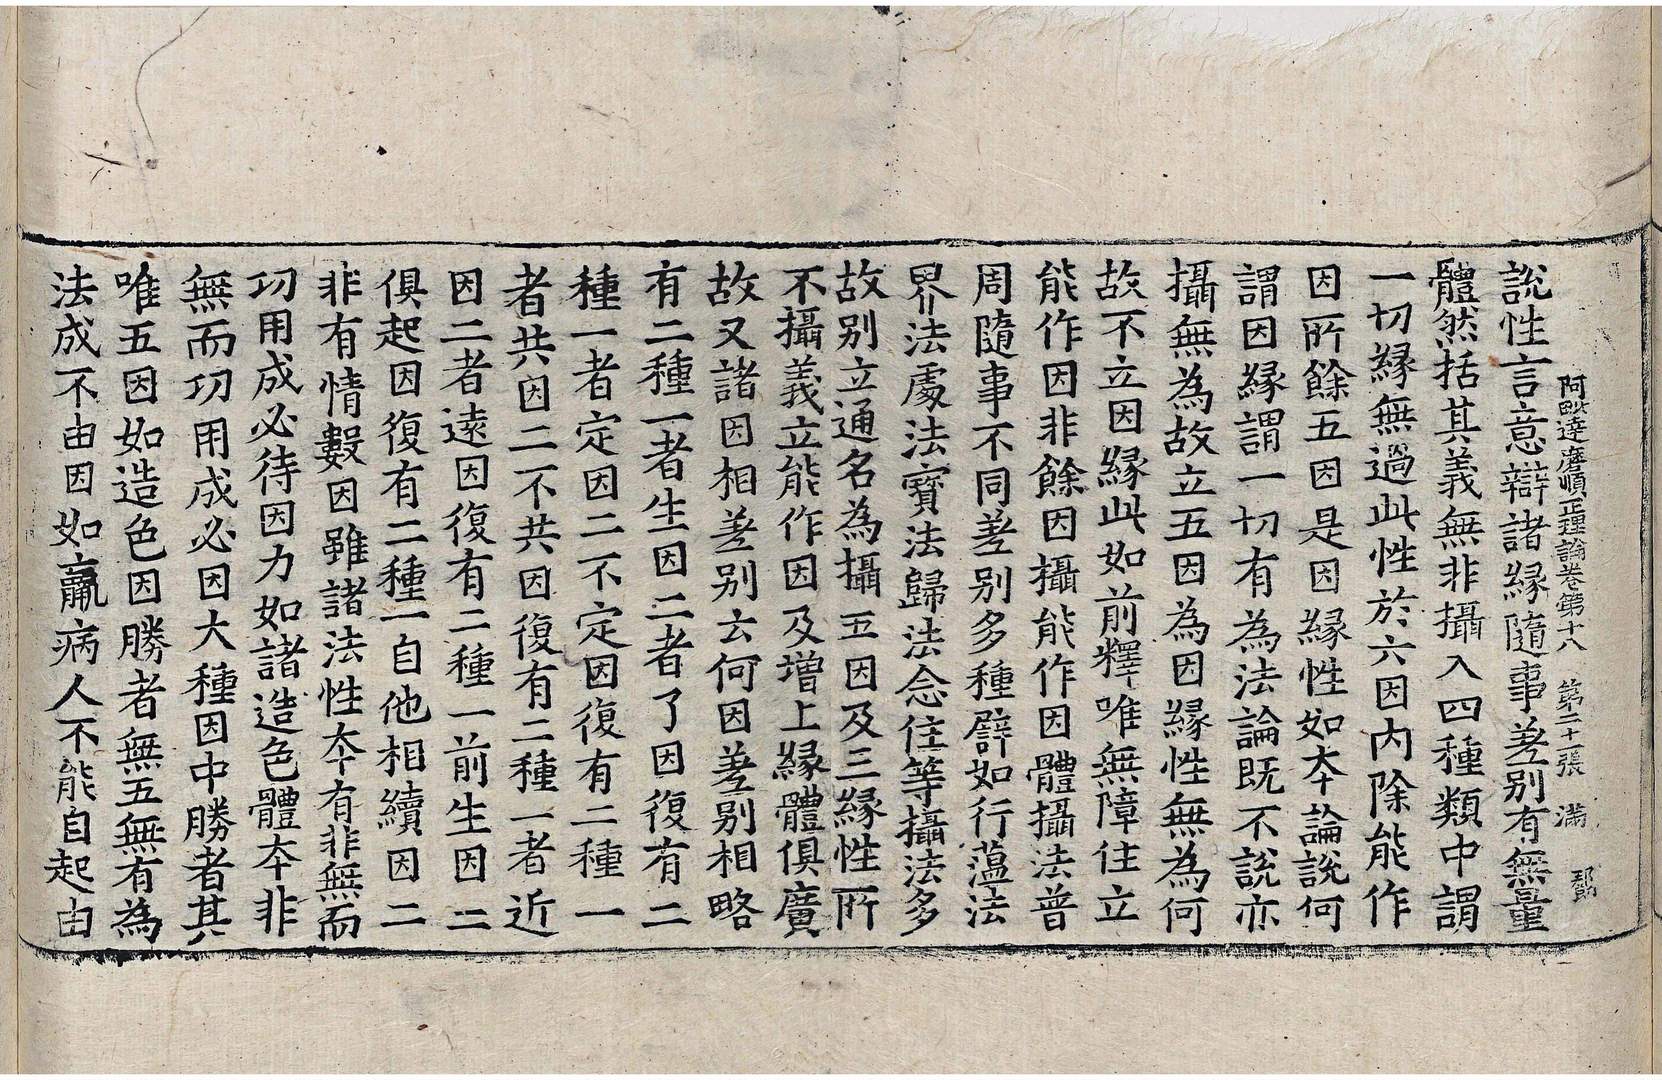 阿毗達磨順正理論卷第十八 第二十一張 滿
說性言意辯諸緣隨事差別有無量
體然括其義無非攝入四種類中謂
一切緣無過此性於六因內除能作
因所餘五因是因緣性如本論說何
謂因緣謂一切有為法論既不說亦
攝無為故立五因為因緣性無為何
故不立因緣此如前釋唯無障住立
能作因非餘因攝能作因體攝法普
周隨事不同差別多種辟如行蘊法
界法處法寶法歸法念住等攝法多
故別立通名為攝五因及三緣性所
不攝義立能作因及增上緣體俱廣
故又諸因相差別云何因差別相略
有二種一者生因二者了因復有二
種一者定因二不定因復有二種一
者共因二不共因復有二種一者近
因二者遠因復有二種一前生因二
俱起因復有二種一自他相續因二
非有情數因雖諸法性本有非無而
功用成必待因力如諸造色體本非
無而功用成必因大種因中勝者其
唯五因如造色因勝者無五無有為
法成不由因如羸病人不能自起由